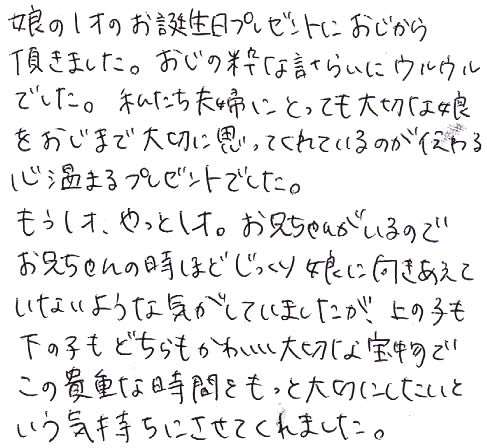 娘の1才のお誕生日プレゼントにおじから
頂きました。おじの粋な計らいにウルウル
でした。私たち夫婦にとっても大切な娘
をおじまで大切に思ってくれているのが伝わる
心温まるプレゼントでした。
もう1才、やっと1才。お兄ちゃんがいるので
お兄ちゃんの時ほどじっくり娘に向きあえて
いないような気がしていましたが、上の子も
下の子もどちらもかわいい大切な宝物で
この貴重な時間をもっと大切にしたいと
いう気持ちにさせてくれました。